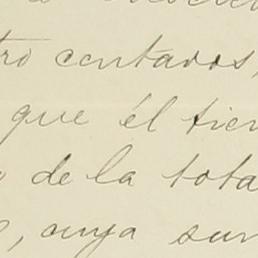 tro centavos,
que él tien
de la tota
, cuya sum